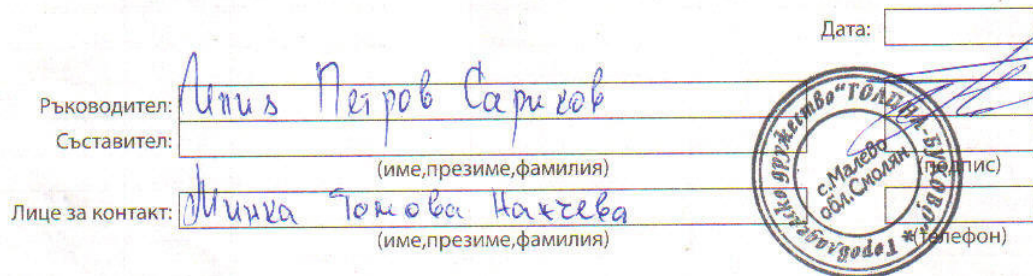 Дата:
Ръководител: Петров Сариков
Съставител:
(име,презиме,фамилия)
(подпис)
Лице за контакт: Минка Томова Накчева
(име,презиме,фамилия)
(телефон)
Горовладелско дружество "ГОЛИНА-БУКОВО" *
с.Малево
обл.Смолян